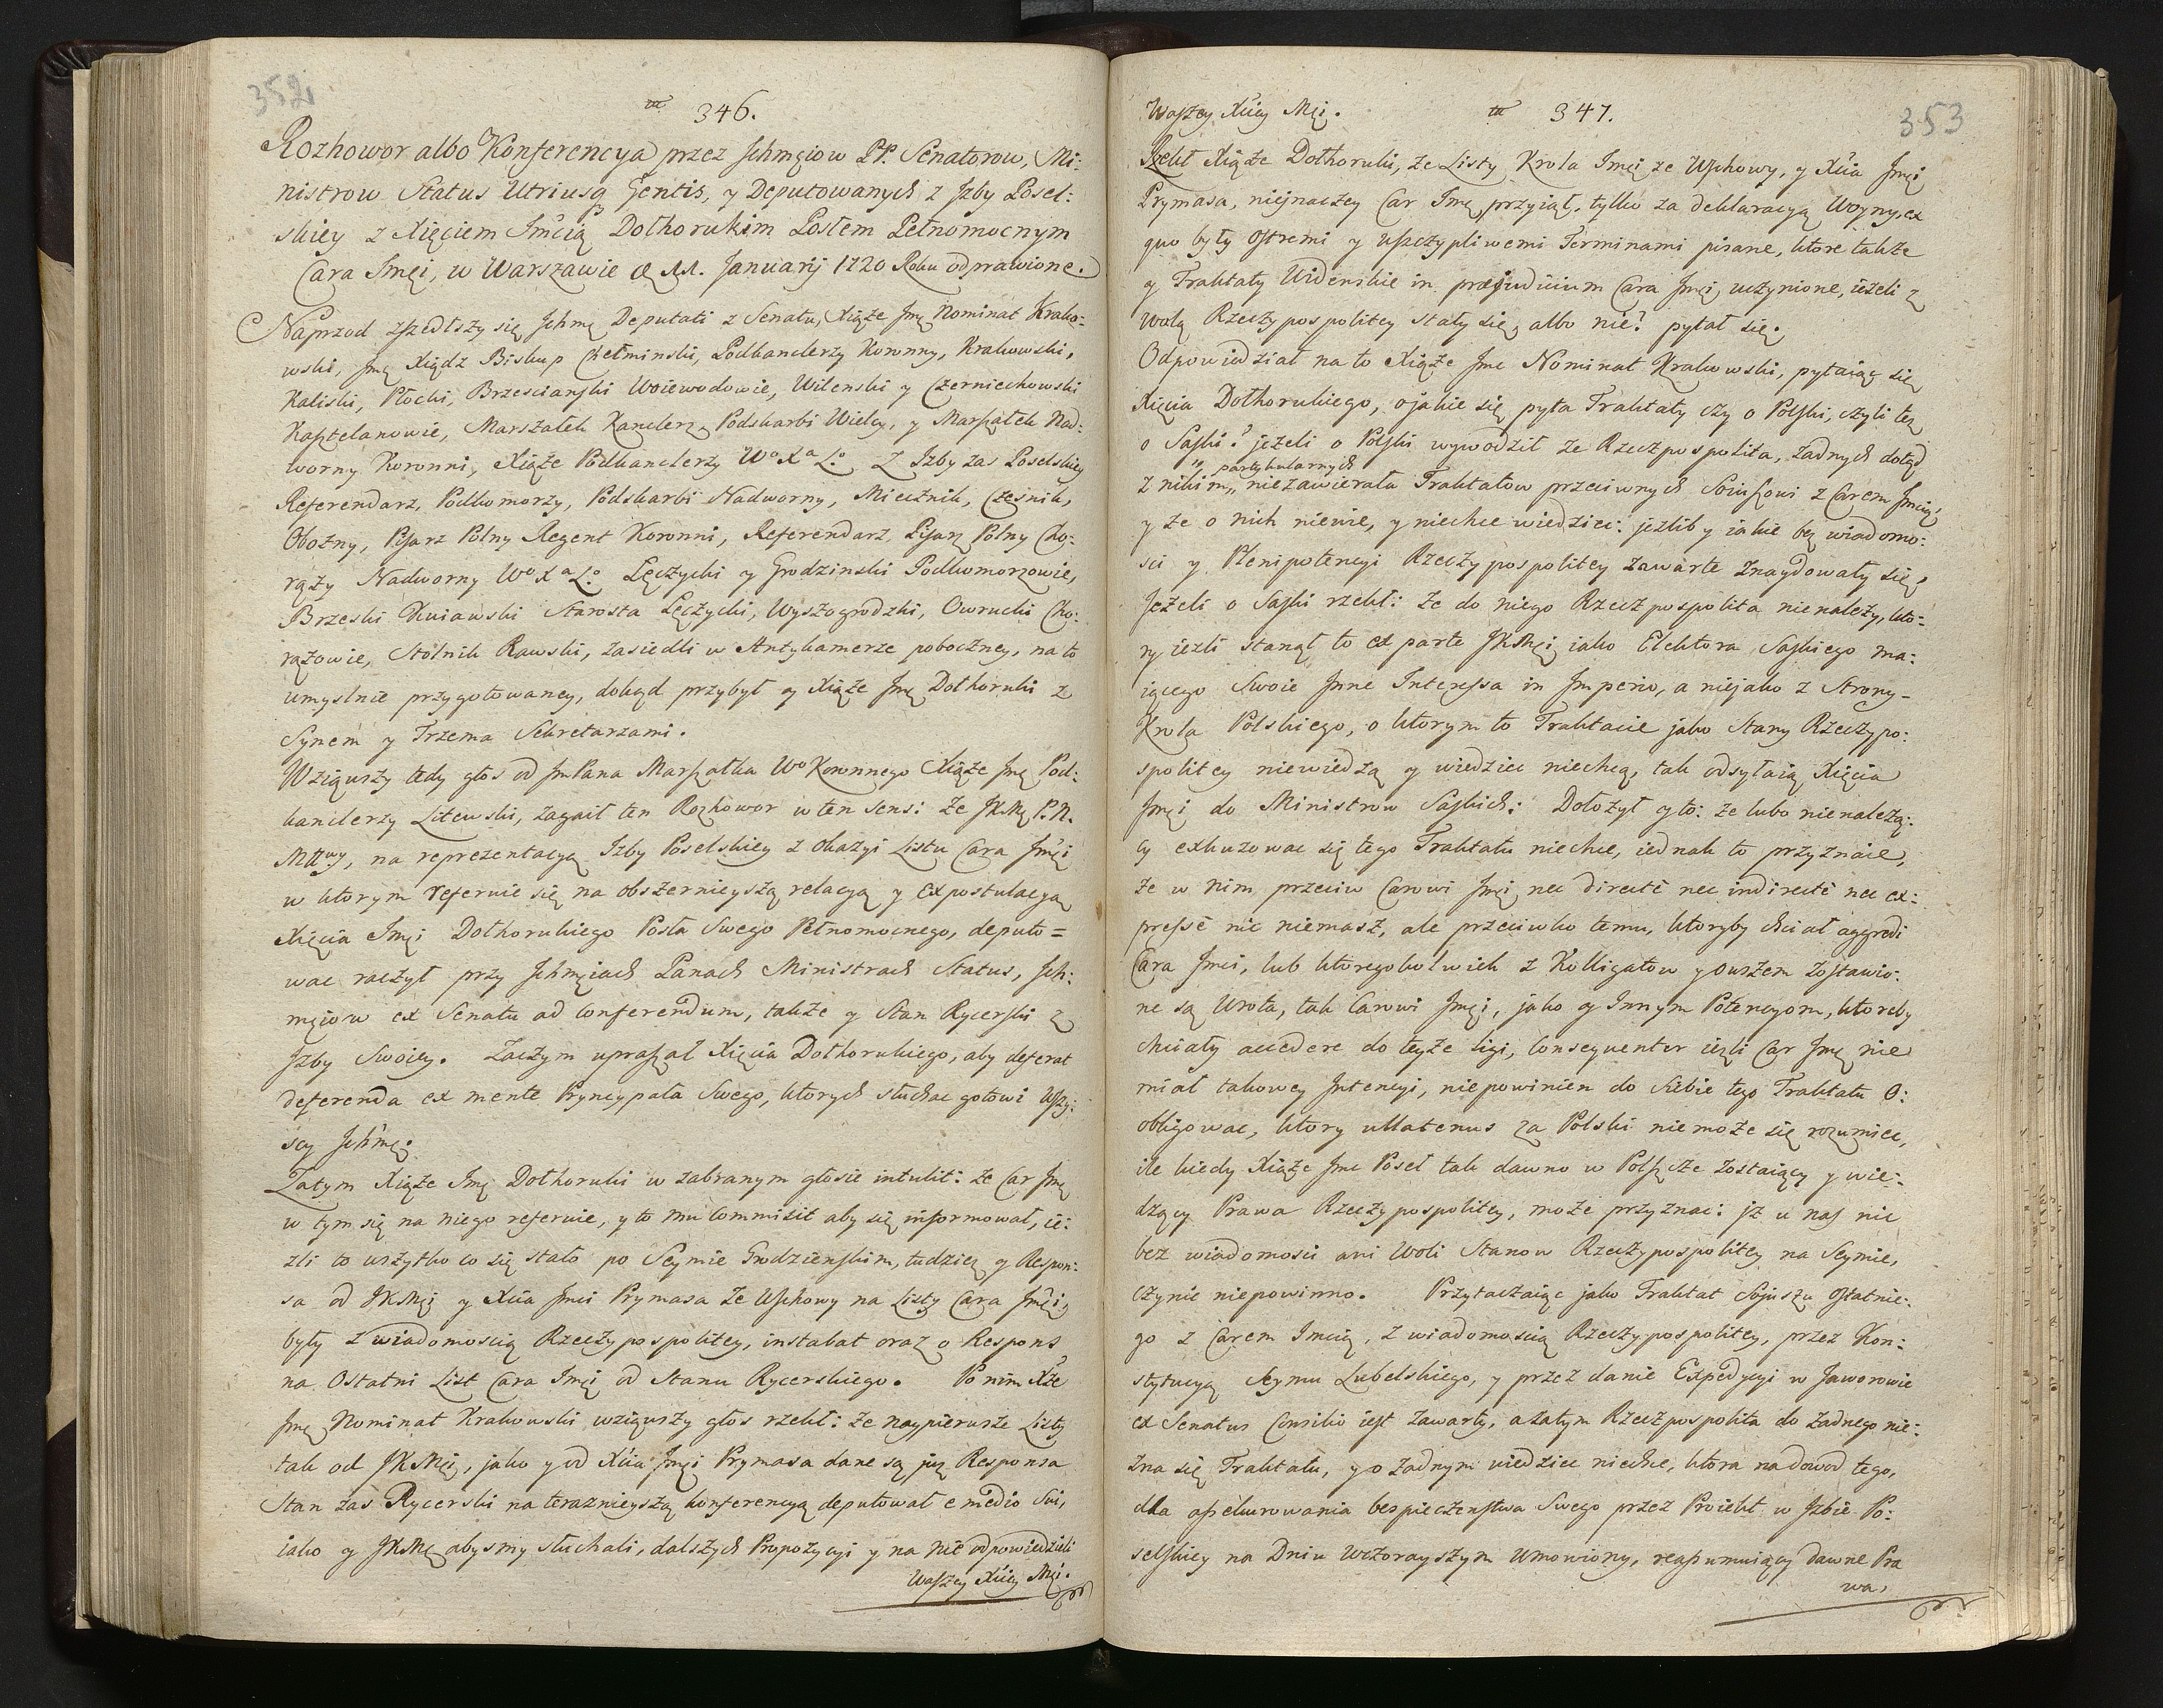 352
346.
Rozhowor albo Konferencya przez Jchmęiow PP. Senatorow, Mi:
nistrow Status Utriusq Gentis, y Deputowanych z Jzby Posel:
skiey z Xięciem Jmcią Dołhorukim Posłem Pełnomocnym
Cara Jmęi, w Warszawie Januarij 1720 Roku odprawione.
Naprzod zszedłszy się Jchmę Deputati z Senatu, Xiąże Jmę Nominat Krako:
wski, Jmę Xiądz Biskup Chełminski, Podkanclerzy Koronny, Krakowski,
Kaliski, Płocki, Brzescianski Woiewodowie, Wilenski y Czerniechowski
Kasztelanowie, Marszałek Kanclerz, Podskarbi Wielcy, y Marszałek Nad:
worny Koronni, Xiąże Podkanclerzy Wo Xa Lo. Z Izby zas Poselskiey
Referendarz, Podkomorzy, Podskarbi Nadworny, Miecznik, Czesnik,
Obozny, Pisarz Polny Regent Koronni, Referendarz, Pisarz Polny Cho:
rąży Nadworny Wo Xa Lo. Lęczycki y Grodzinski Podkomorzowie,
Brzeski Kuiawski Starosta Lęczycki, Wyszogrodzki, Owrucki Cho:
rążowie, Stolnik Rawski, zasiedli w Antykamerze poboczney, na to
umyslnie przygotowaney, dokąd przybył y Xiąże Jmę Dołhoruki z
Synem y Trzema Sekretarzami.
Wziąwszy tedy głos od JmPana Marszałka Wo Koronnego Xiąże Jmę Pod:
kanclerzy Litewski, zagaił ten Rozhowor w ten sens: Ze JKMę P. N.
Mttwy, na reprezentacyą Izby Poselskiey z okazyi Listu Cara Jmęi
w ktorym referuie się na obszernieyszą relacyą y expostulacyą
Xięcia Jmęi Dołhorukiego Posła Swego Pełnomocnego, deputo=
wac raczył przy Jchmęiach Panach Ministrach Status, Jch:
męiow ex Senatu ad conferendum, także y Stan Rycerski z
Jzby Swoiey. Zaczym upraszał Xięcia Dołhorukiego, aby deferat
deferenda ex mente Pryncypała Swego, ktorych słuchac gotowi wszy:
scy Jchmę.
Zatym Xiąże Jmę Dołhoruki w zabranym głosie intulit: ze Car Jmę
w tym się na niego referuie, y to mu commisit aby się informował, ie:
zli to wszytko co się stało po Seymie Grodzienskim, tudziez y Respon:
sa od JKMęi y Xcia Jmci Prymasa ze Wschowy na Listy Cara Jmęi,
były z wiadomoscią Rzeczypospolitey, instabat oraz o Respons
na Ostatni List Cara Jmęi od Stanu Rycerskiego. Po nim Xże
Jmę Nominat Krakowski wziąwszy głos rzekł: ze naypierwsze Listy
tak od JKMęi, jako y od Xcia Jmęi Prymasa dane są już Responsa
Stan zas Rycerski na teraznieyszą konferencyą deputował e medio Sui,
iako y JKMę abysmy słuchali, dalszych Propozycyi y na nie odpowiedzieli
Waszey Xciey Męi.
353
347.
Waszey Xciey Męi.
Rzekł Xiąże Dołhoruki, ze Listy Krola Jmęi ze Wschowy, y Xcia Jmęi
Prymasa, nieinaczey Car Jmę przyiął, tylko za deklaracyą Woyny, ex
quo były ostremi y uszczypliwemi Terminami pisane, ktore także
y Traktaty Widenskie in præjudicium Cara Jmęi uczynione, ieżeli z
wolą Rzeczypospolitey stały się, albo nie? pytał się.
Odpowiedział na to Xiąże Jmc Nominat Krakowski, pytaiąc się
Xięcia Dołhorukiego, o jakie się pyta Traktaty czy o Polski, czyli też
o Saski? jeżeli o Polski wywodził ze Rzeczpospolita, żadnych dotąd
z nikim „ partykularnych niezawierała Traktatow przeciwnych Soiuszowi z Carem Jmcią,
y że o nich niewie, y niechce wiedziec: jezliby iakie bez wiadomo:
sci y Plenipotencyi Rzeczypospolitey zawarte znaydowały się,
Jeżeli o Saski rzekł: Ze do niego Rzeczpospolita nienależy, kto:
ry iezli stanął to ex parte JKMęi iako Elektora Saskiego ma:
iącego Swoie Jnne Interessa in Imperio, a nie jako z Strony
Krola Polskiego, o ktorym to Traktacie jako Stany Rzeczypo:
spolitey niewiedzą y wiedziec niechcą, tak odsyłaią Xięcia
Jmęi do Ministrow Saskich: Dołożył y to: ze lubo nienależą:
cy exkuzowac się tego Traktatu niechce, iednak to przyznaie,
że w nim przeciw Carowi Jmęi nec directè nec indirectè nec ex:
pressè nic niemasz, ale przeciwko temu, ktoryby chciał aggredi
Cara Jmci, lub ktoregokolwiek z Kolligatow y owszem zostawio:
ne są Wrota, tak Carowi Jmęi, jako y Innym Potencyom, ktoreby
chciały accedere do teyże Ligi, consequenter iezli Car Jmę nie
miał takowey Jntencyi, niepowinien do Siebie tego Traktatu O:
obligowac, ktory ullatenus za Polski niemoże się rozumiec,
ile kiedy Xiąże Jmc Poseł tak dawno w Polszcze zostaiący y wie:
dzący Prawa Rzeczypospolitey, może przyznac: jż u nas nic
bez wiadomosci ani Woli Stanow Rzeczypospolitey na Seymie,
czynic niepowinno. Przytaczaiąc jako Traktat Sojuszu Ostatnie:
go z Carem Jmcią, z wiadomoscią Rzeczypospolitey, przez Kon:
stytucyą Seymu Lubelskiego, y przez danie Expedycyi w Jaworowie
ex Senatus Consilio iest zawarty, a zatym Rzeczpospolita do żadnego nie:
zna się Traktatu, y o żadnym wiedziec niechce, ktora na dowod tego,
dla assekurowania bespieczenstwa Swego przez Proiekt w Jzbie Po:
selskiey na Dniu wczorayszym Umowiony, reassumuiący dawne Pra
wa,